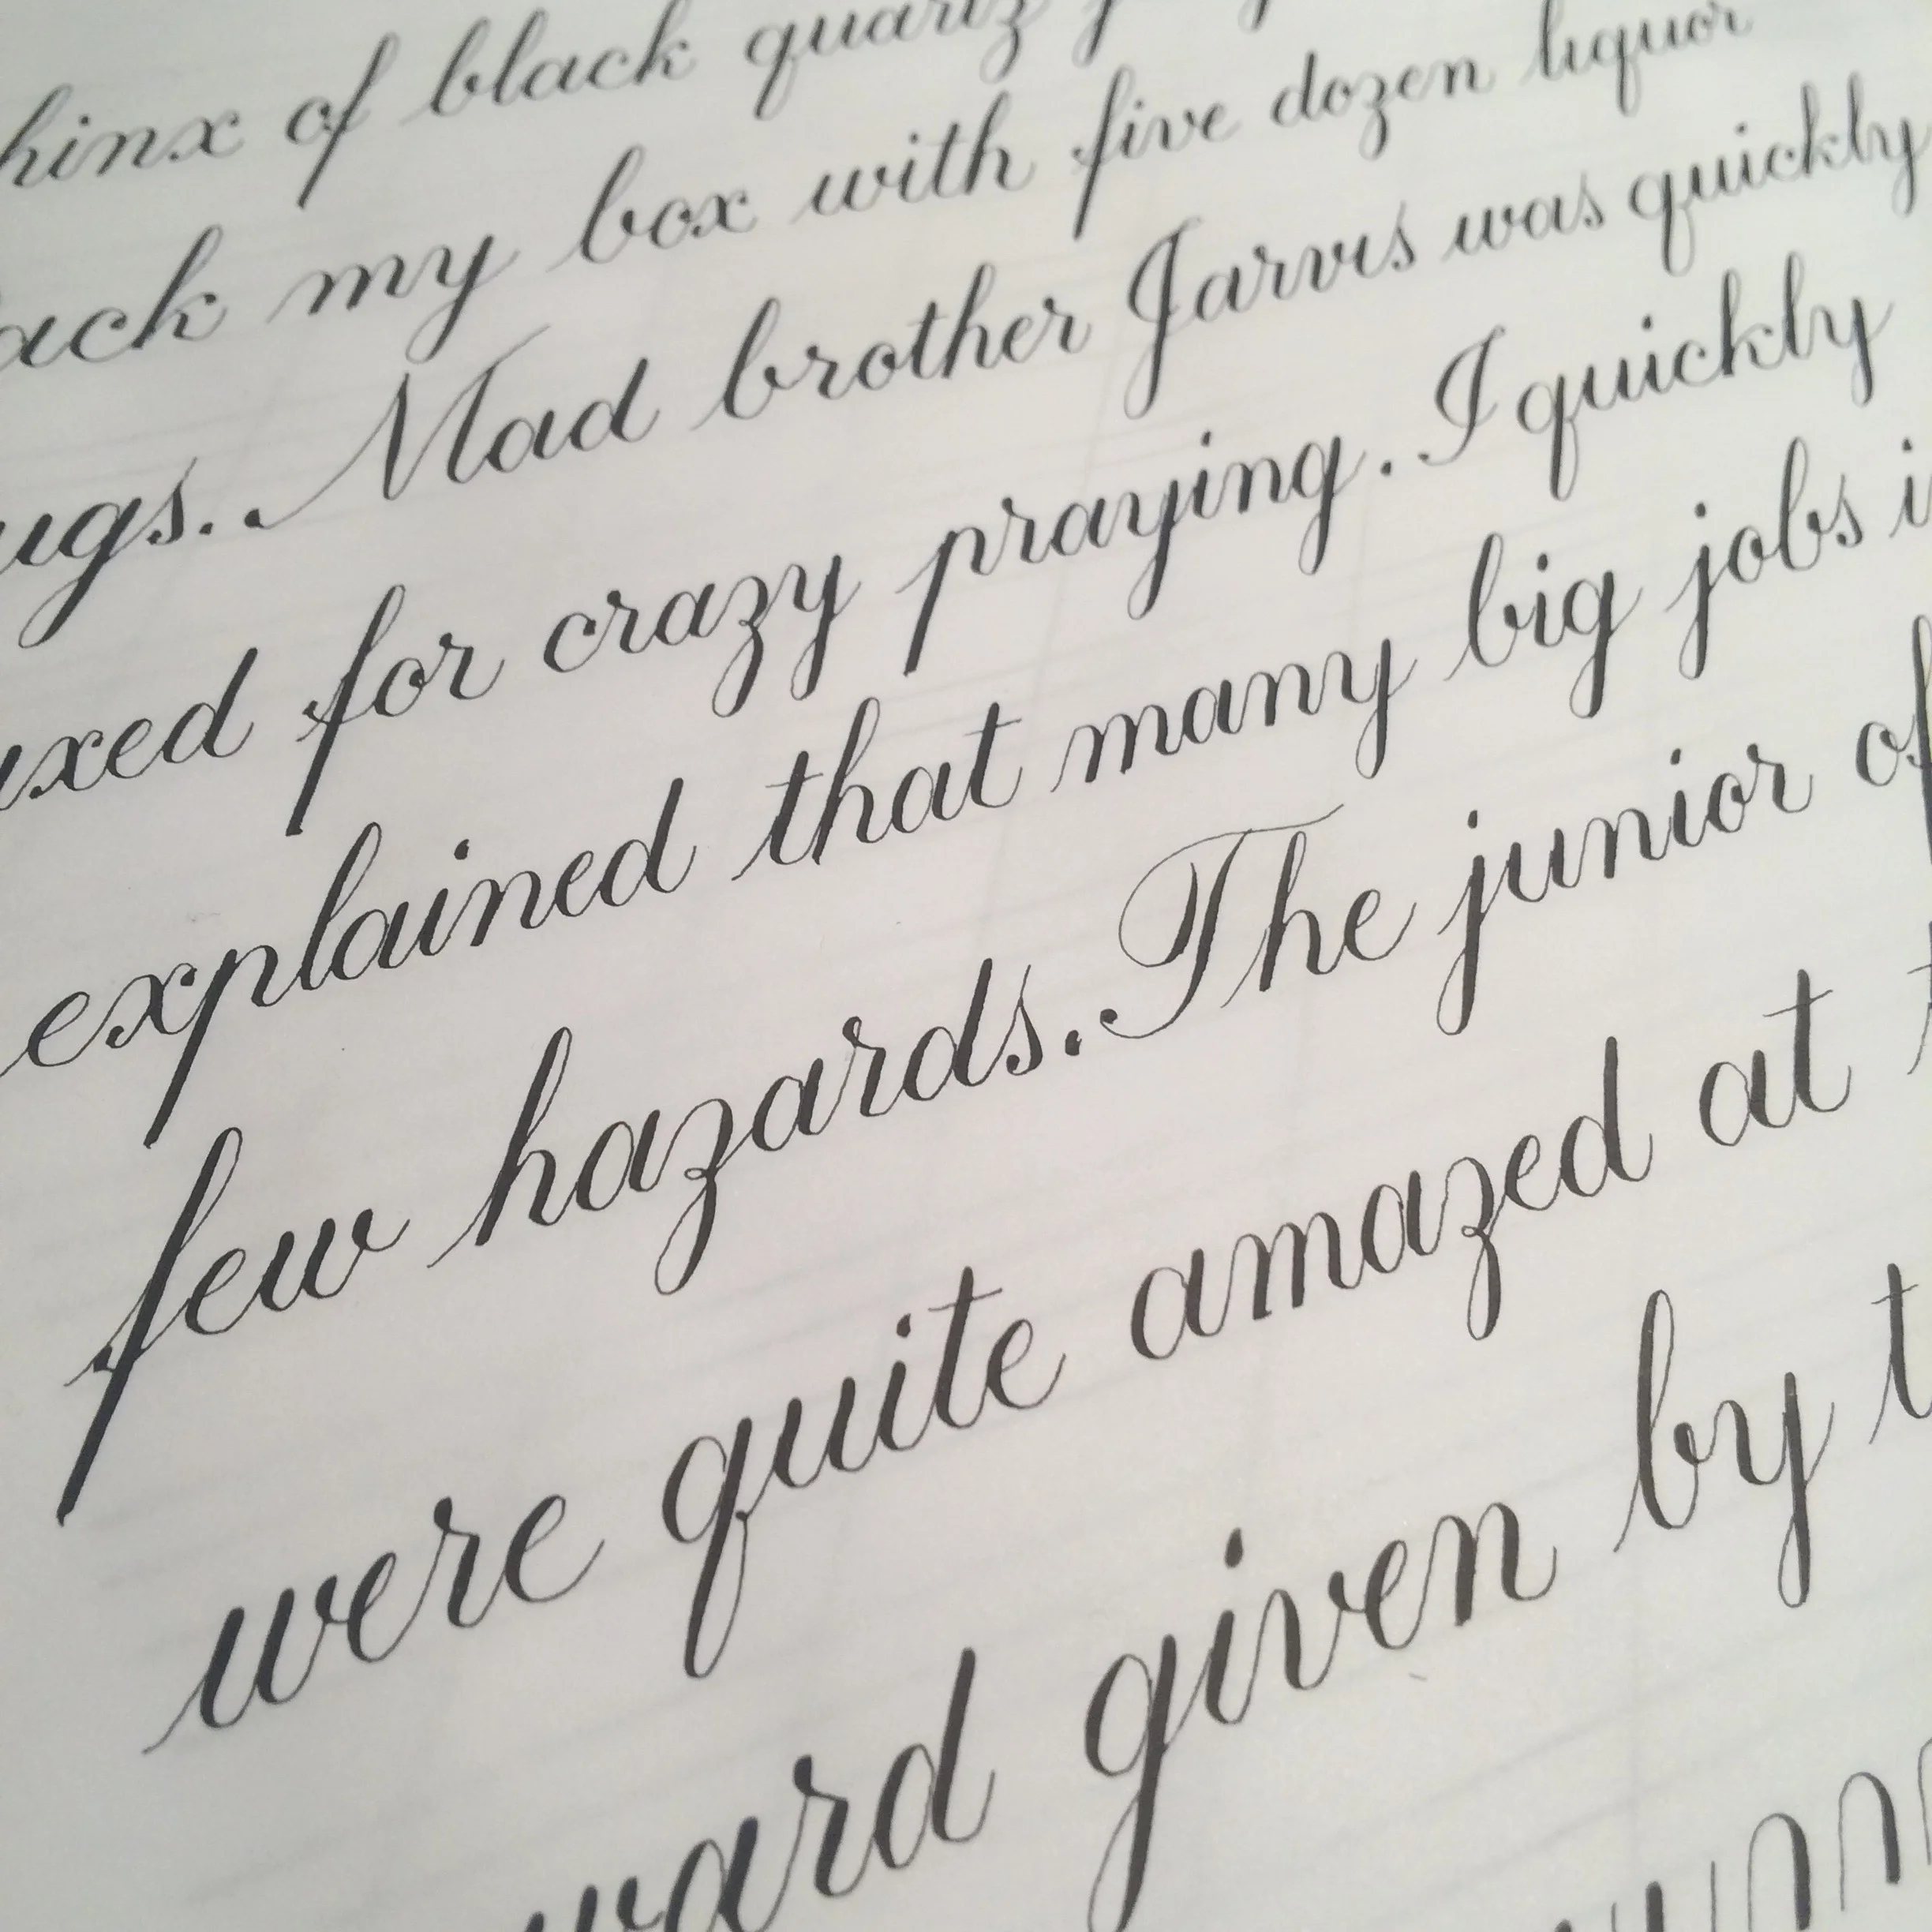 hinx of black quartz
ack my box with five dozen liquor
ugs. Mad brother Jarvis was quickly
axed for crazy praying. I quickly
explained that many big jobs i
few hazards. The junior of
were quite amazed at t
ward given by t